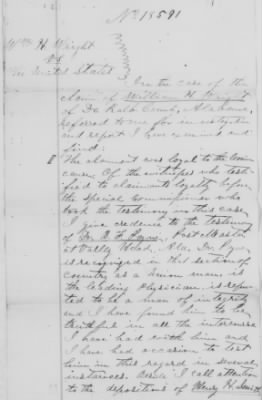 No 18591
Wm H. Wright
vs
The United States
In the case of the
claim of William H. Wright
of De Kalb County, Alabama,
referred to me for investigation
and report I have examined and
find:
I The claimant was loyal to the Union
cause. Of the witnesses who testi-
fied to claimants loyalty before
the special Commissioner who
took the testimony in this case
I give credence to the testimony
of Dr. Post Master
at Valley Head, Ala. Dr.
is recognized in that section of
country as a Union man is
the leading physician, is repu-
ted to be a man of integrity
and I have found him to be
truthful in all the intercourse
I have had with him and
I have had occasion to test
him in this regard in several
instances. I call attention
to the depositions of Henry H.